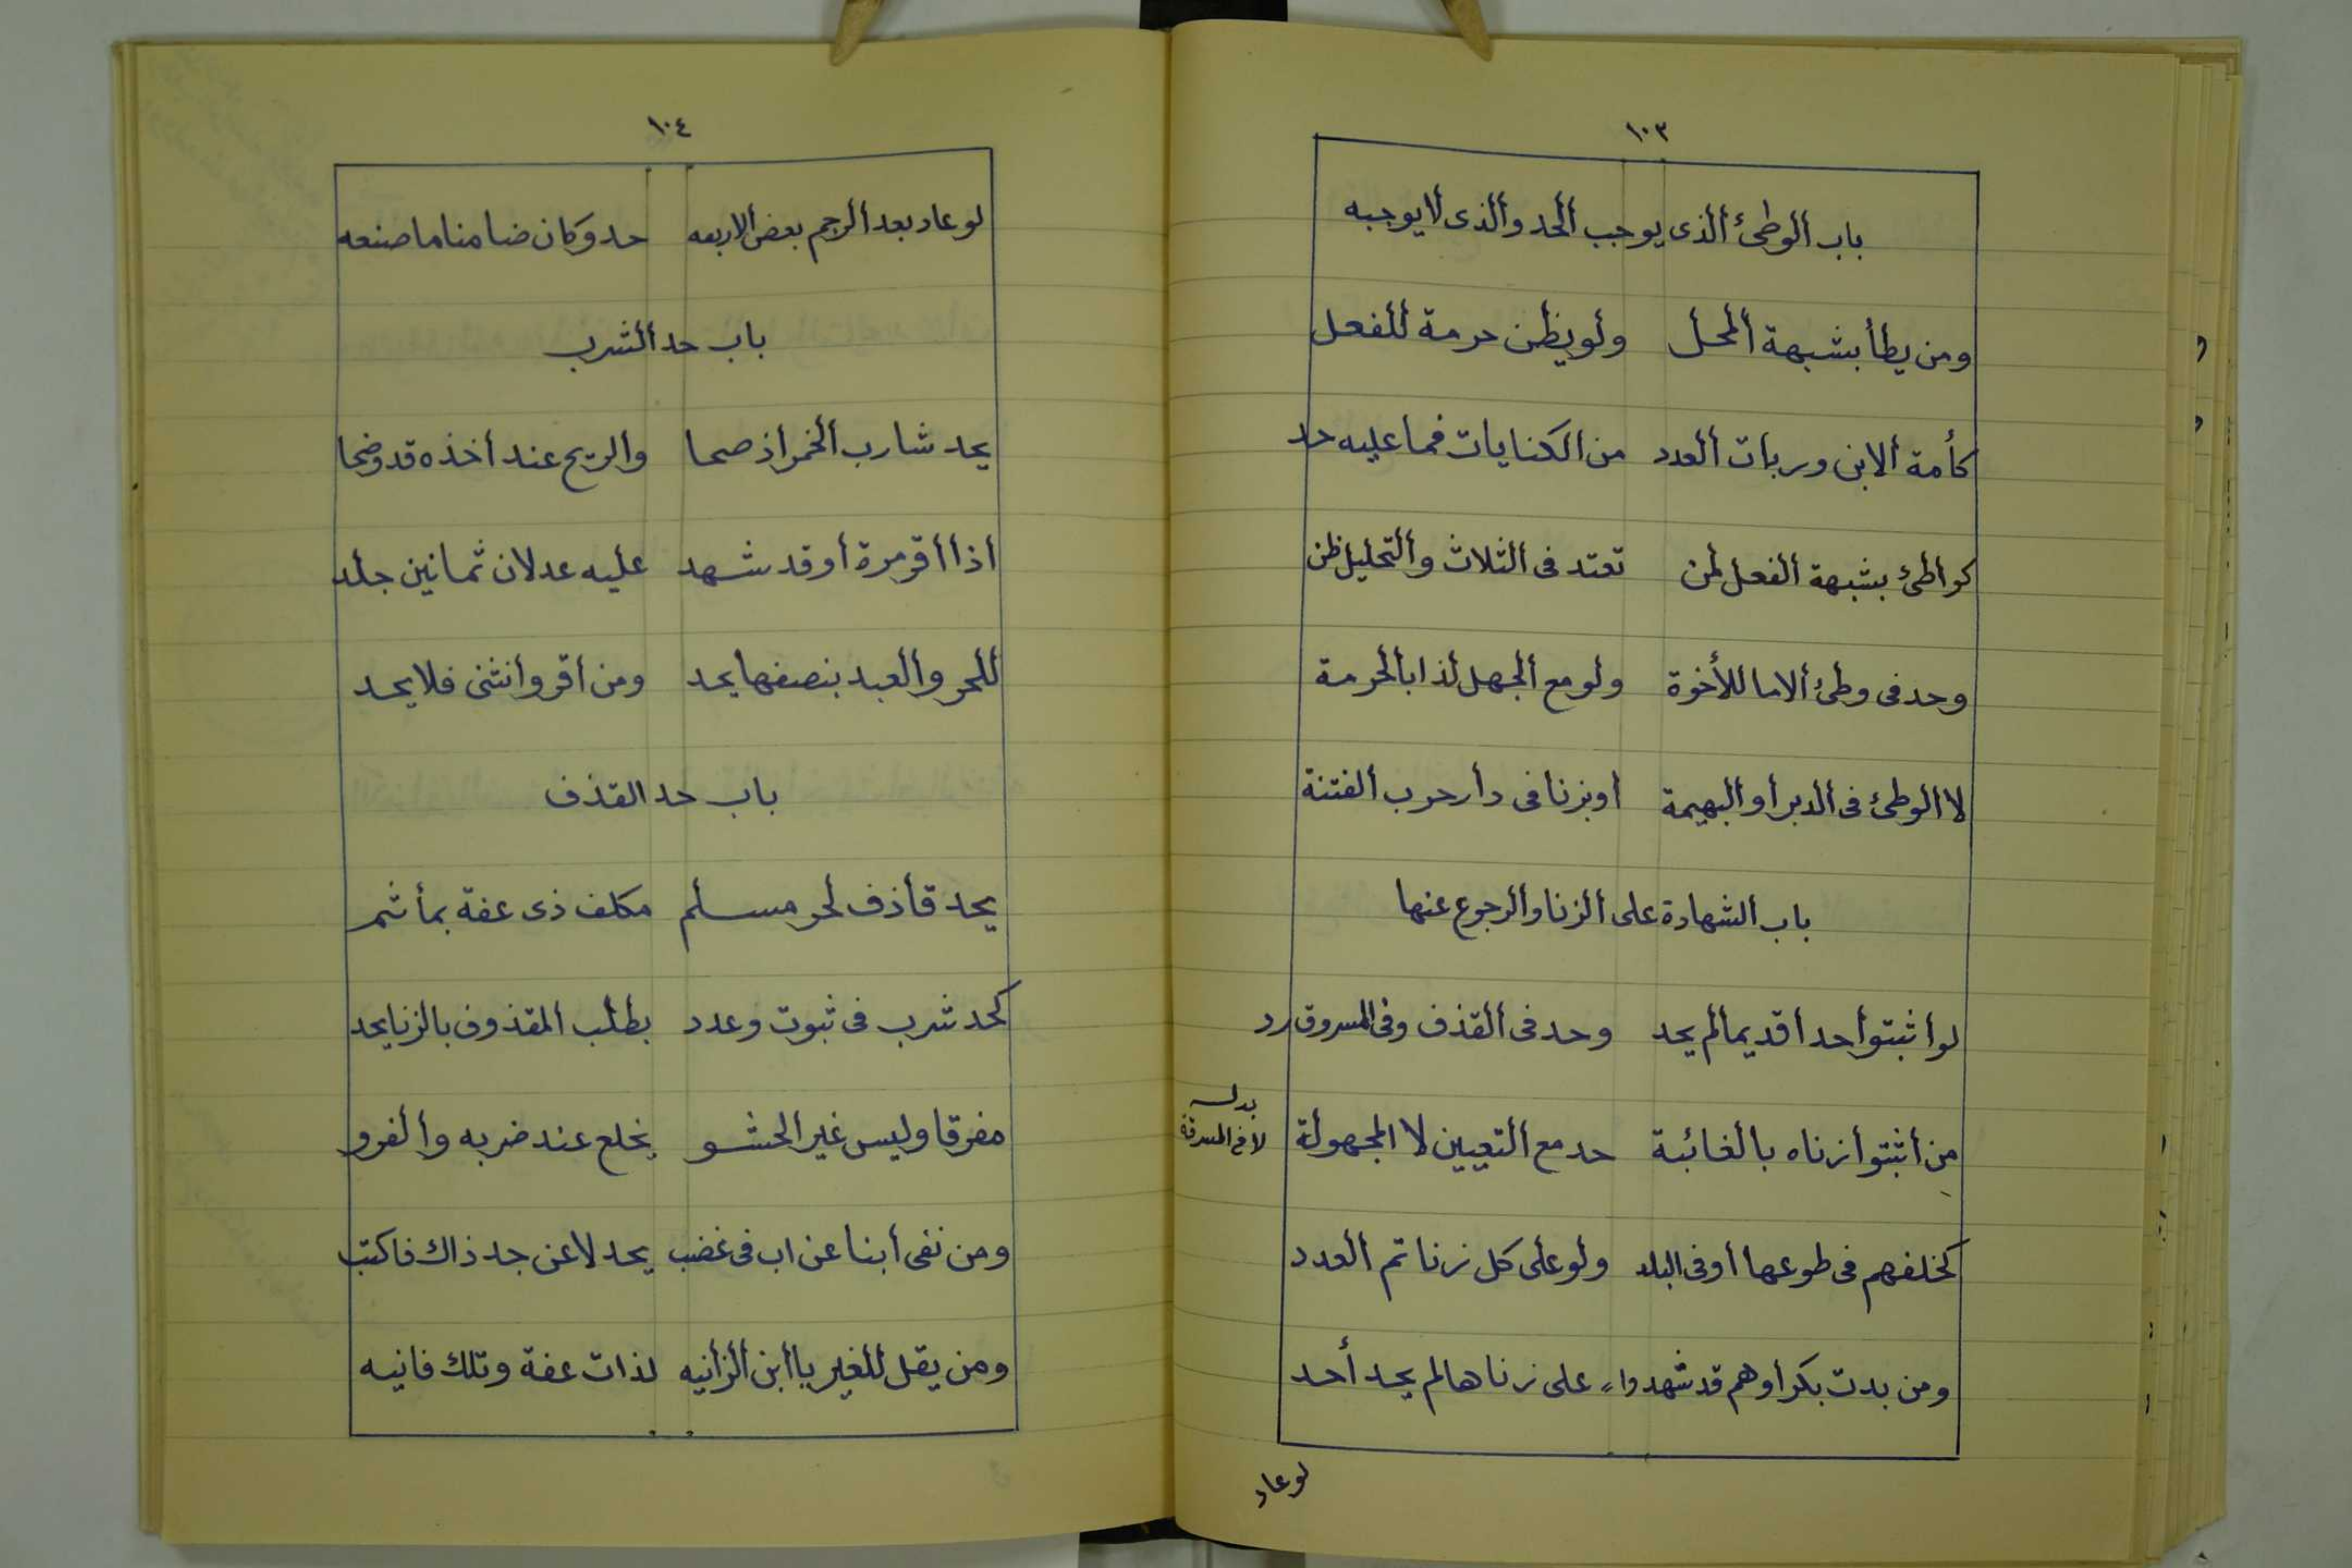 ١٠٣
باب الوطئ الذى يوجب الحد والذى لا يوجبه
ومن يطأ بشبهة المحل ولو يظن حرمة للفعل
كأمة الابن وربات العدد من الكنايات فما عليه حد
كواطئ بشبهة الفعل لمن تعتد فى الثلاث والتحليل ظن
وحد فى وطئ الاما للأخوة ولو مع الجهل لذا بالحرمة
لا الوطئ فى الدبر أو البهيمة أو بزنا فى دار حرب الفتنة
باب الشهادة على الزنا والرجوع عنها
لو اثبتوا حدا قديما لم يحد وحد فى القذف وفى المسروق رد
من أثبتوا زناه بالغائبة حد مع التعيين لا المجهولة
بدل
لا فى السرقة
كخلفهم فى طوعها أو فى البلد ولو على كل زنا تم العدد
ومن بدت بكرا وهم قد شهدوا على زناها لم يحد أحد
لو عاد
١٠٤
لو عاد بعد الرجم بعض الاربعه حد وكان ضامنا ما صنعه
باب حد الشرب
يحد شارب الخمر اذ صحا والريح عند أخذه قد وضحا
اذا أقر مرة أو قد شهد عليه عدلان ثمانين جلد
للحر والعبد بنصفها يحد ومن أقر وانثنى فلا يحد
باب حد القذف
يحد قاذف لحر مسلم مكلف ذى عفة بمأثم
كحد شرب فى ثبوت وعدد بطلب المقذوف بالزنا يحد
مفرقا وليس غير الحشو يخلع عند ضربه والفرو
ومن نفى أبنا عن اب فى غضب يحد لا عن جد ذاك فاكتب
ومن يقل للغير يا أبن الزانيه لذات عفة وتلك فانيه